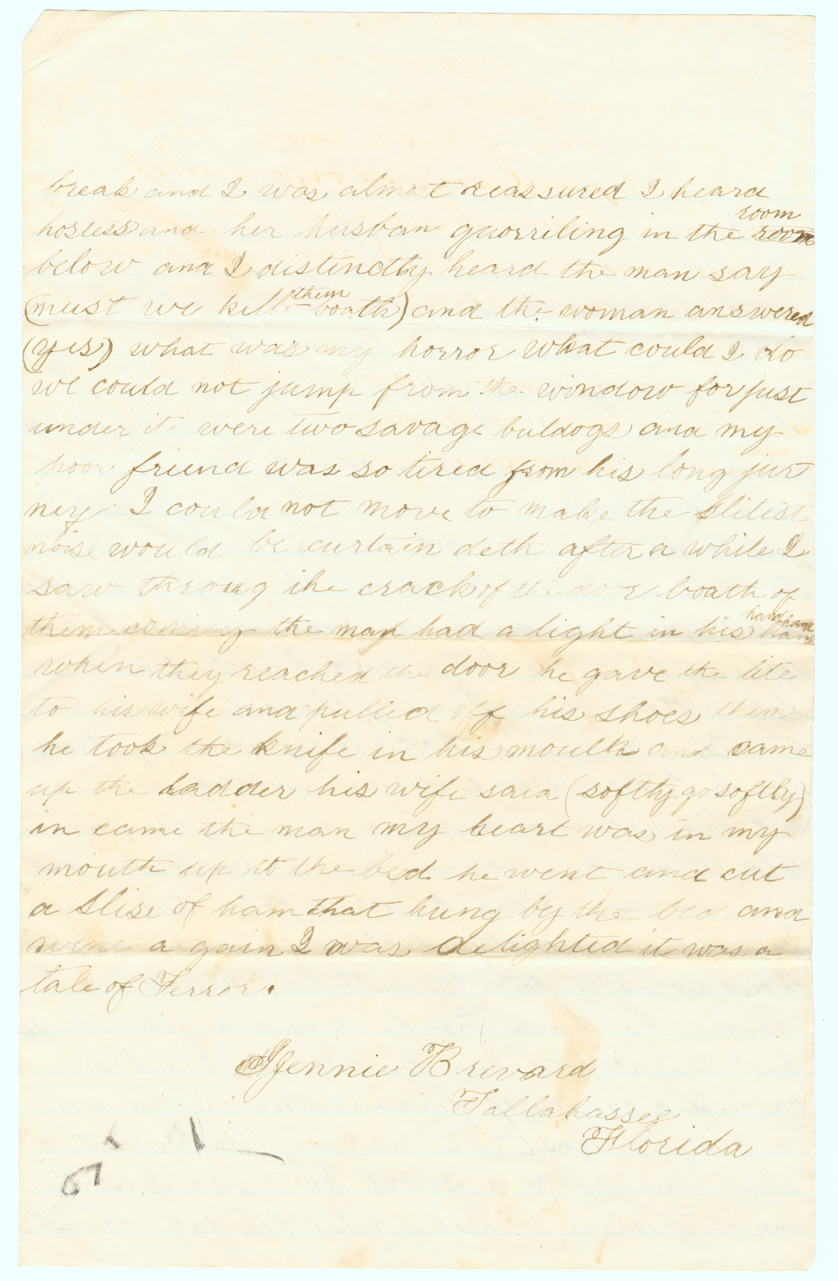 break and I was almost reassured I heard
hostess and her husban quorriling in the room room
below and I distindtly heard the man say
(must we kill them boath) and the woman answered
(yes) what was my horror what could I do
we could not jump from the window for just
under it were two savage buldogs and my
poor friend was so tired from his long jur
ney I could not move to make the slitest
noise would be curtain deth after a while I
saw throug the crack of the door boath of
them coming the man had a light in his hand
when they reached the door he gave the lite
to his wife and pulled off his shoes then
he took the knife in his mouth and came
up the ladder his wife said (softly go softly)
in came the man my heart was in my
mouth up to the bed he went and cut
a slise of ham that hung by the bed and
went a gain I was delighted it was a
tale of Terror.
Jennie Brevard
Tallahassee
Florida